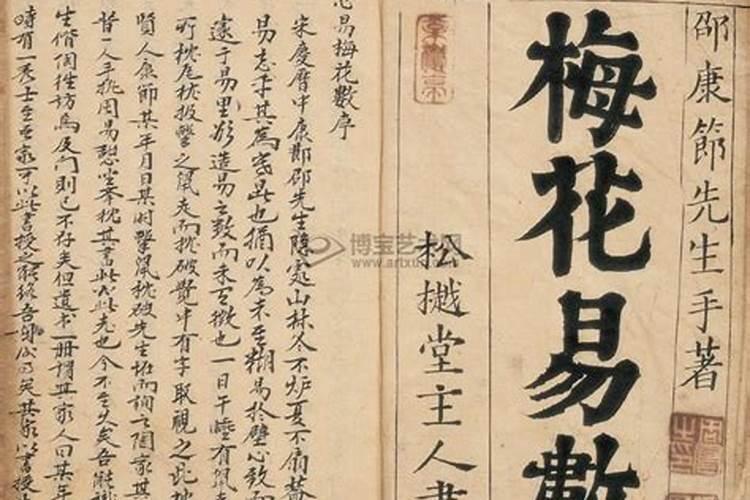 邵康節先生手著
梅花易數
松樾堂主人書
心易梅花數序
宋慶曆中康節邵先生隱處山林冬不炉夏不扇蓋
易忘乎其為寒暑也猶以為未至糊易於壁心致而
邃于易里欲造易之數而未互徵也一日午睡有鼠走
所枕瓦枕投擊之鼠走而枕破覺中有字取視之此枕
賢人康節某年月日某時擊鼠枕破先生怪而詢之陶家其
昔一人手挑周易憩坐举枕其書此必此老也今不至久矣吾能識
生偕個往訪焉及門則已不存矣但遺书一冊謂其家人曰某年
時有一秀士至吾家可以此書授之能終吾身矣其家以書授
博宝艺术网
www.artxun.com